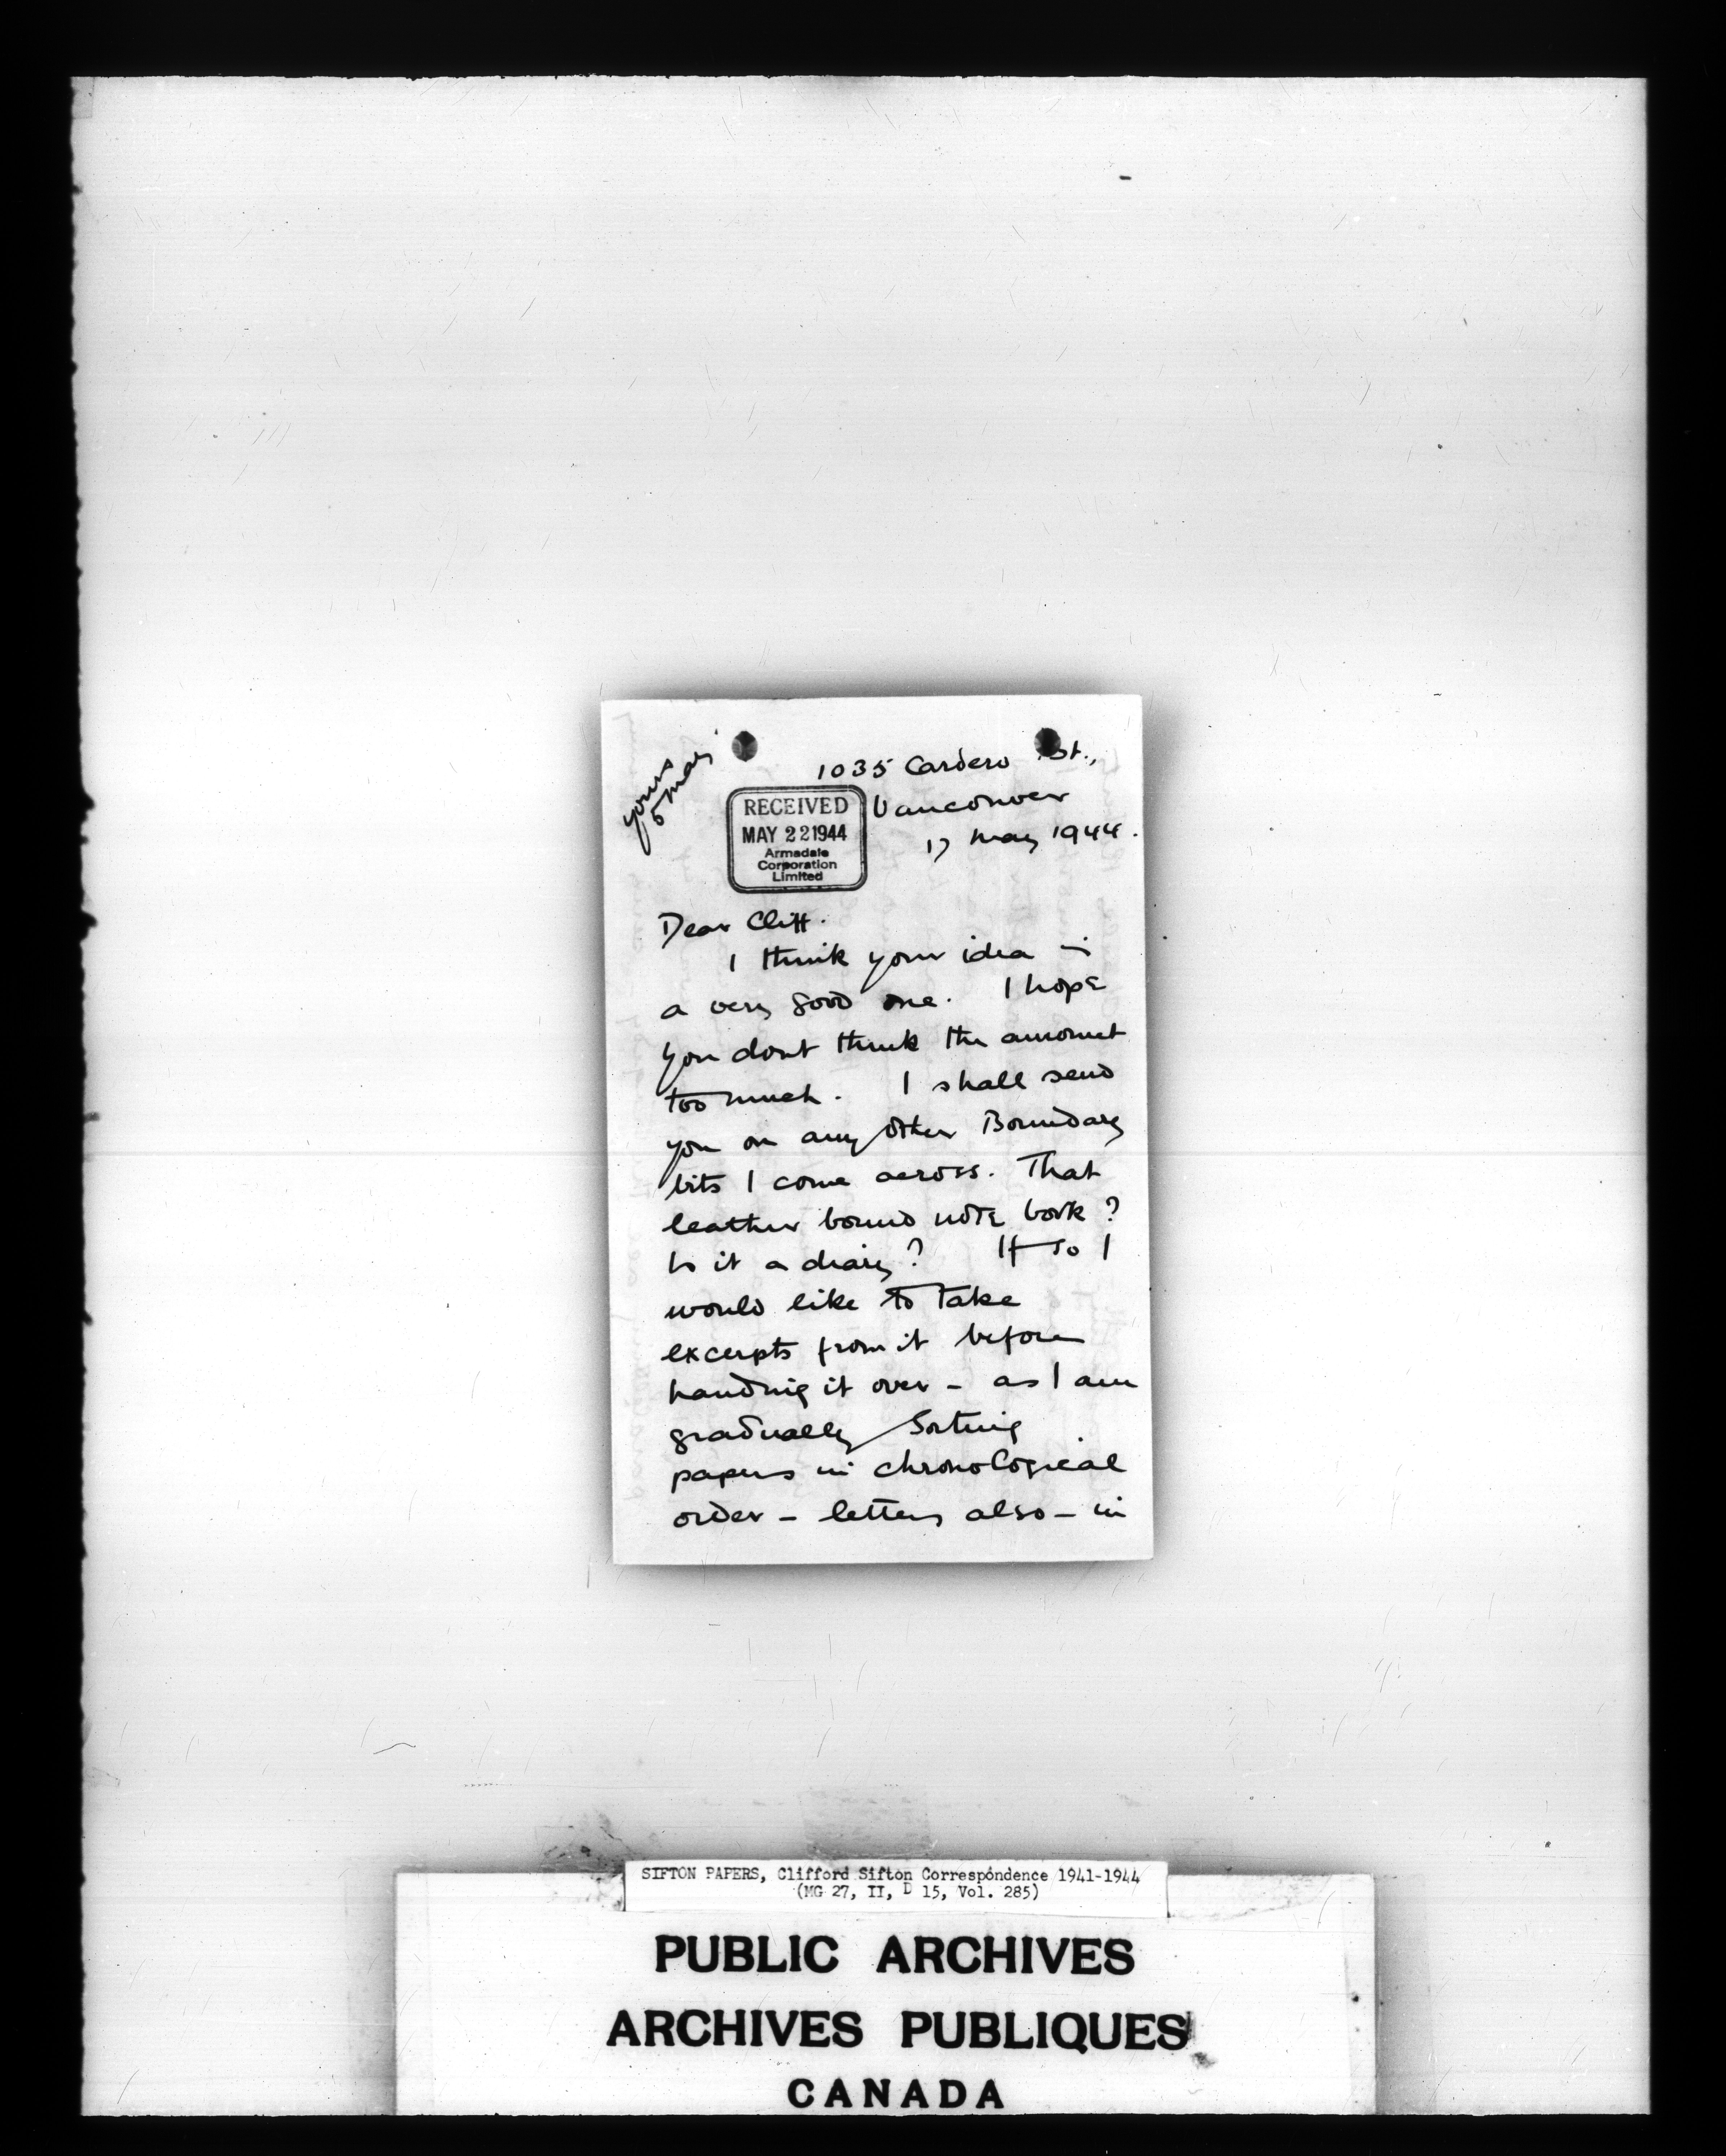 yours
5 May
1035 Cardero St.,
Vancouver
17 May 1944.
RECEIVED
MAY 22 1944
Armadale
Corporation
Limited
Dear Cliff.
I think your idea is
a very good one. I hope
you dont think the amount
too much. I shall send
you on any other Boundary
bits I come across. That
leather bound note book?
Is it a diary? If so I
would like to take
excerpts from it before
handing it over - as I am
gradually sorting
papers in chronological
order - letters also - in
SIFTON PAPERS, Clifford Sifton Correspondence 1941-1944
(MG 27, II, D 15, Vol. 285)
PUBLIC ARCHIVES
ARCHIVES PUBLIQUES
CANADA